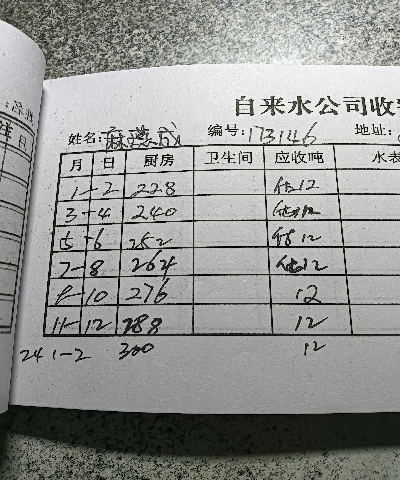 自来水公司收
姓名: 麻 成 编号: 173146 地址:
月 日 厨房 卫生间 应收吨 水表
1-2 228 估12
3-4 240 估12
5-6 252 估12
7-8 264 估12
9-10 276 12
11-12 288 12
24 1-2 300 12